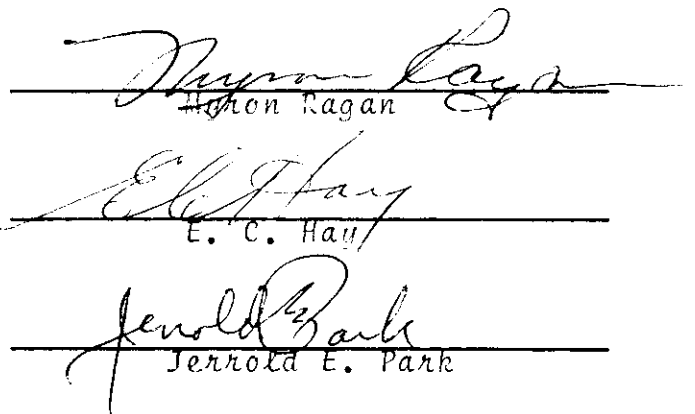 Myron Ragan
Myron Ragan
E. C. Hay
E. C. Hay
Jerrold E. Park
Jerrold E. Park